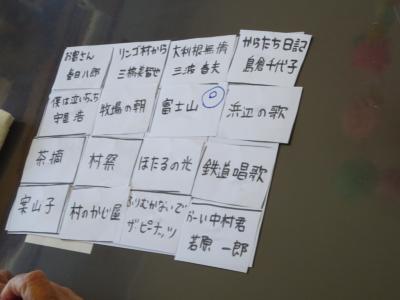 お客さん
春日八郎
リンゴ村から
三橋美智也
大利根無情
三波春夫
からたち日記
島倉千代子
僕は泣いちっち
守屋浩
牧場の朝
富士山
浜辺の歌
茶摘
村祭
ほたるの光
鉄道唱歌
案山子
村のかじ屋
ふりむかないで
ザ・ピーナッツ
おーい中村君
若原一郎